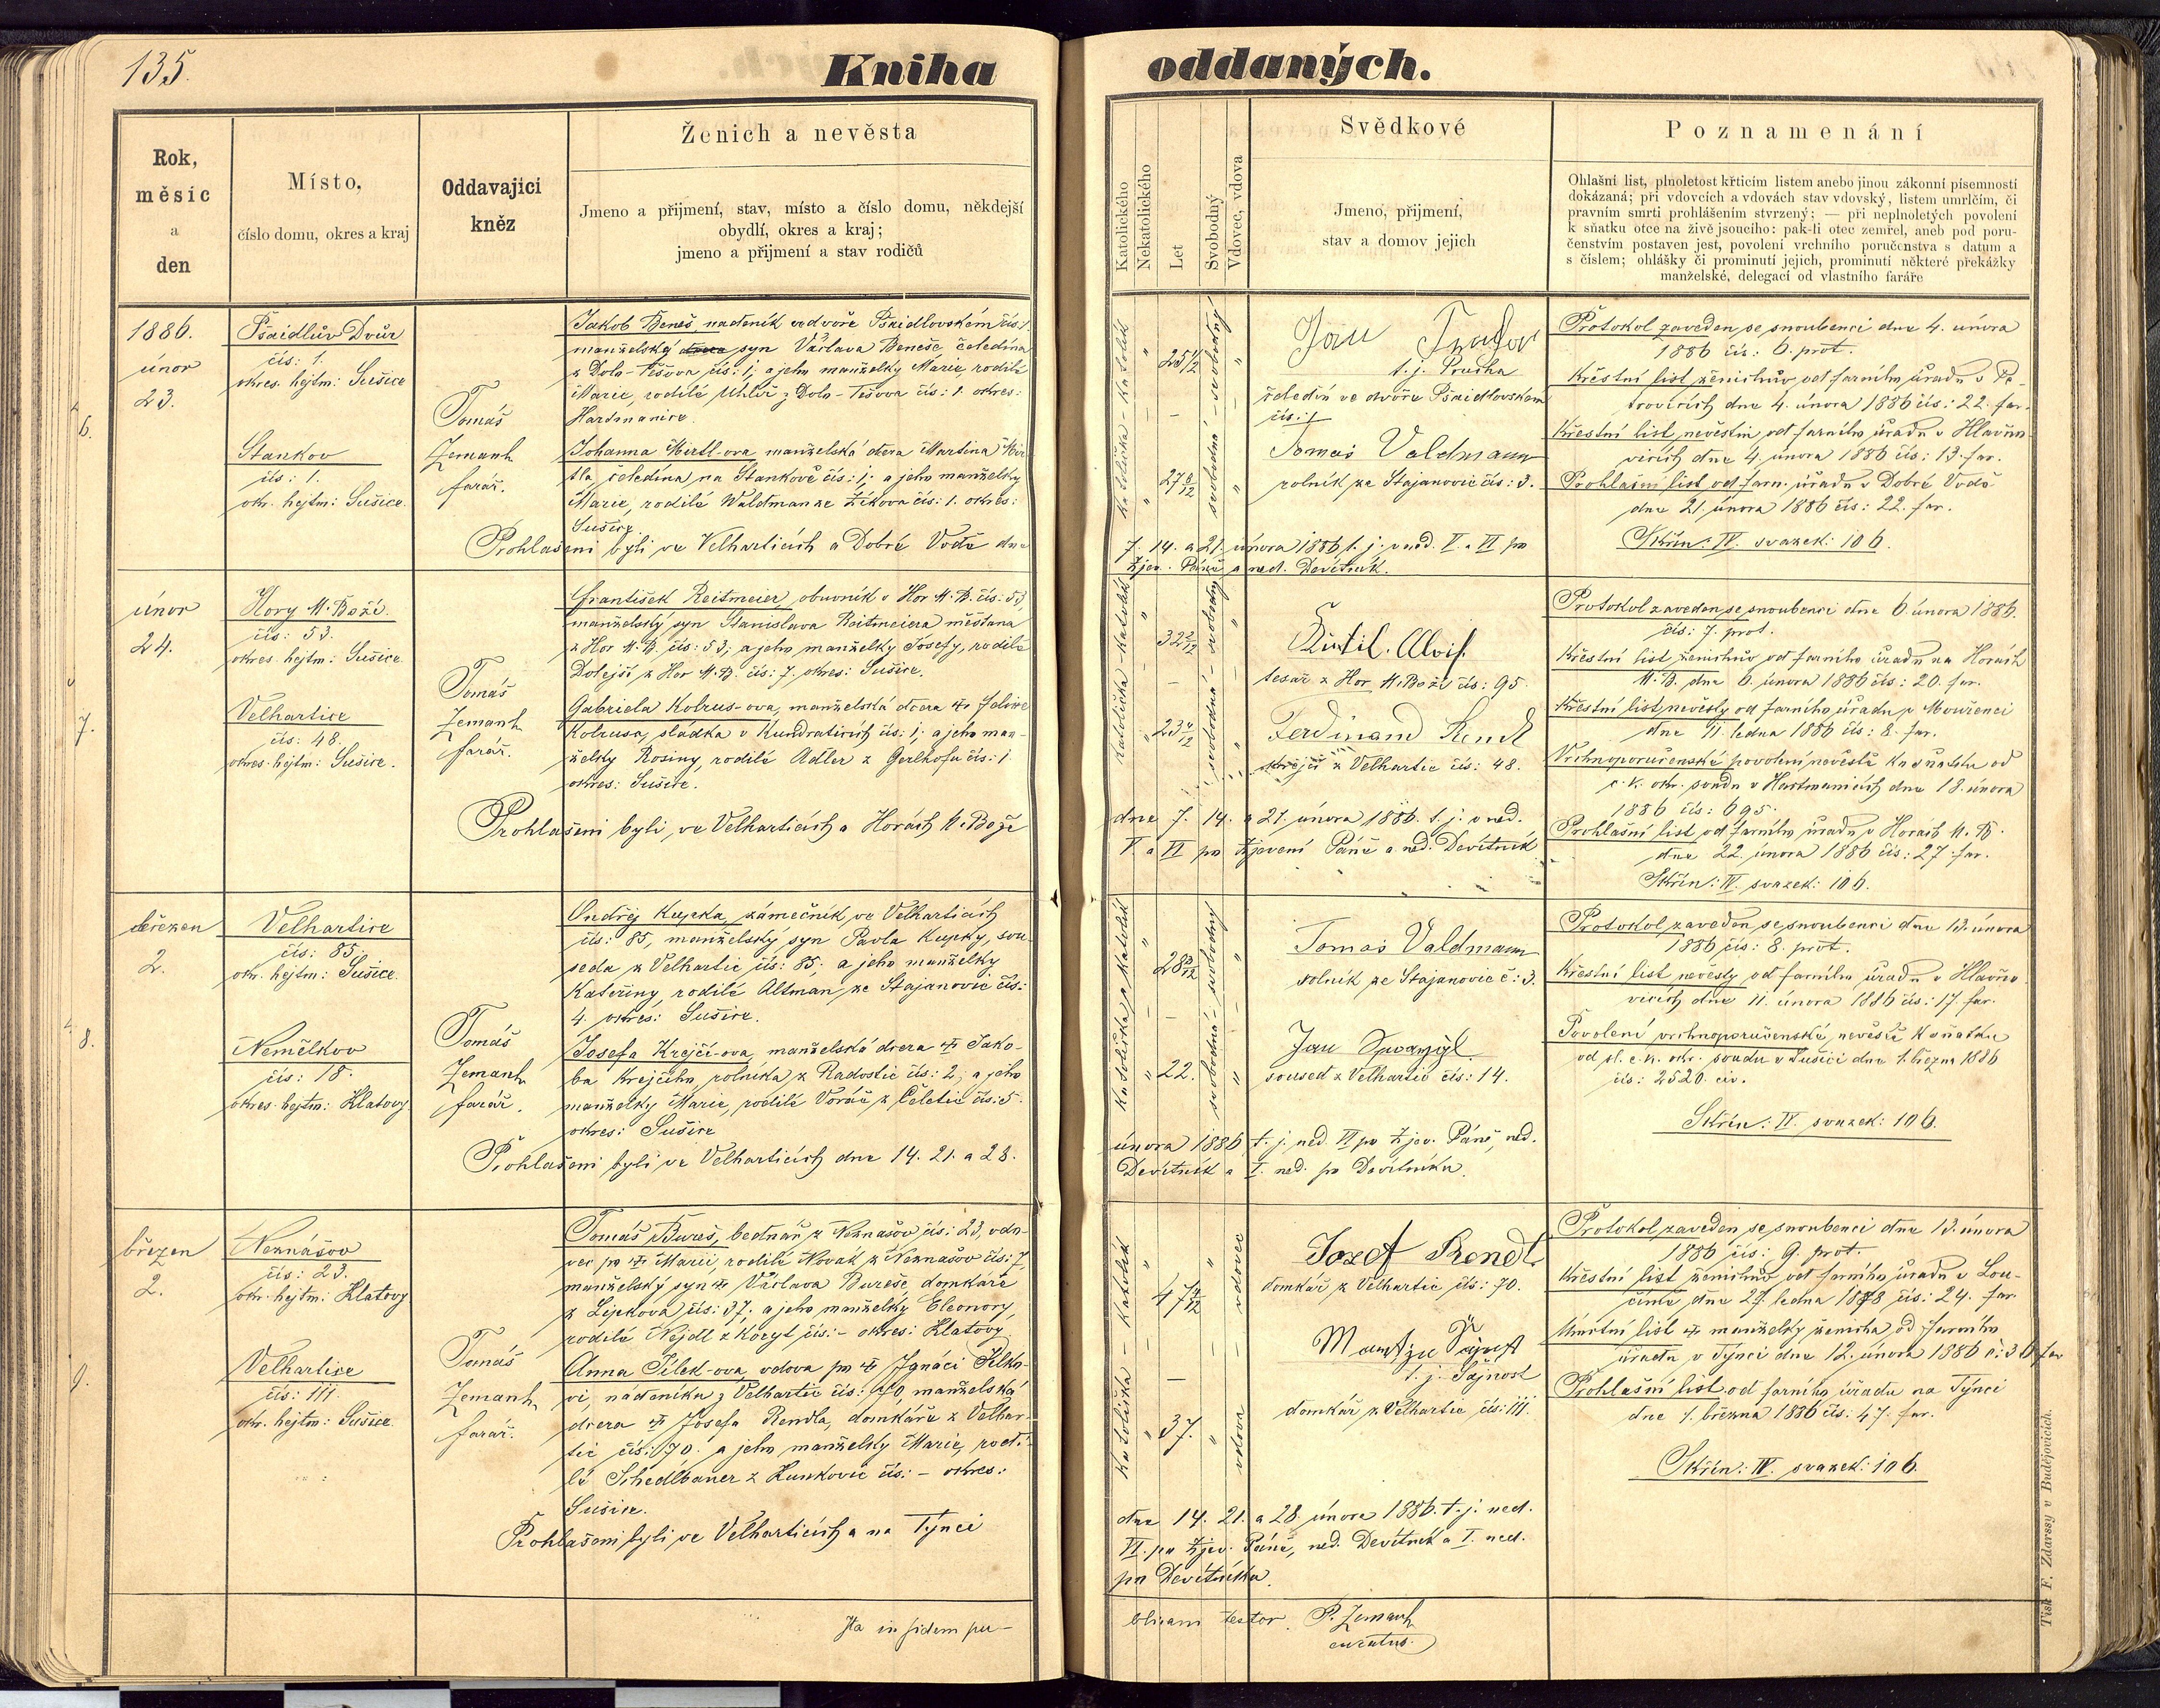 135.
Kniha
oddaných.
Rok,
měsíc
a
den
Místo,
číslo domu, okres a kraj
Oddavající
kněz
Ženich a nevěsta
Jmeno a přijmení, stav, místo a číslo domu, někdejší
obydlí, okres a kraj;
jmeno a přijmení a stav rodičů
Katolického
Nekatolického
Let
Svobodný
Vdovec, vdova
Svědkové
Jmeno, přijmení,
stav a domov jejich
Poznamenání
Ohlašní list, plnoletost křticím listem anebo jinou zákonní písemností
dokázaná; při vdovcích a vdovách stav vdovský, listem umrlčím, či
pravním smrti prohlášením stvrzený; — při neplnoletých povolení
k sňatku otce na živě jsoucího: pak-li otec zemřel, aneb pod poru-
čenstvím postaven jest, povolení vrchního poručenstva s datum a
s číslem; ohlášky či prominutí jejich, prominutí některé překážky
manželské, delegací od vlastního faráře
6.
1886.
únor
23.
Pšaidlův Dvůr
čís: 1.
okres. hejtm: Sušice
Stankov
čís: 1.
okr. hejtm: Sušice.
Tomáš
Zemanh
farář.
Jakob Beneš, nadeník ve dvoře Pšaidlovském čís: 1
manželský syn Václava Beneše, čeledína
z Dolo-Těšova čís: 1; a jeho manželky Marie, rodilé
Marie, rodilé Uhlíř z Dolo-Těšova čís: 1. okres:
Hartmanice.
Johanna Mertl-ova manželská dcera Martina Mer
tla, čeledína na Stankově čís: 1; a jeho manželky
Marie, rodilé Waldman ze Žikova čís: 1. okres:
Sušice.
Prohlašeni byli ve Velharticích a Dobré Vodě dne
7. 14. a 21. února 1886 t. j. v ned. V. a VI po
Zjev. Páně a ned. Devítník.
Katolička – Katolík
25 1/12
27 8/12
svobodná – svobodný
t. j. Prucha
čeledín ve dvoře Pšaidlovském
čís: 1
Tomáš Valdmann
rolník ze Stajanovic čís: 3.
Protokol zaveden se snoubenci dne 4. února
1886 čís: 6. prot.
Křestní list ženichův od farního úřadu v Pe-
trovicích dne 4. února 1886 čís: 22. far.
Křestní list nevěstin od farního úřadu v Hlavňo-
vicích dne 4. února 1886 čís: 13. far.
Prohlašní list od farn. úřadu v Dobré Vodě
dne 21. února 1886 čís: 22. far.
Skřín: IV. svazek: 106.
7.
únor
24.
Hory M. Boží.
čís: 53.
okres. hejtm: Sušice
Velhartice
čís: 48.
okres. hejtm: Sušice.
Tomáš
Zemanh
farář.
František Reitmeier, obuvník v Hor M. B. čís: 53,
manželský syn Stanislava Reitmeiera měšťana
z Hor M. B. čís: 53; a jeho manželky Josefy, rodilé
Dolejší z Hor M. B. čís: 7. okres: Sušice.
Gabriela Kolrus-ova, manželská dcera Felixe
Kolrusa, sládka v Kundraticích čís: 1; a jeho man-
želky Rosiny, rodilé Adler z Gerlhofu čís: 1.
okres: Sušice.
Prohlašeni byli ve Velharticích a Horách M. Boží
dne 7. 14. a 21. února 1886. t. j. v ned.
V. a VI po Zjevení Páně a ned. Devítník
Katolička – Katolík
32 2/12
23 4/12
svobodná – svobodný
Alois
tesař z Hor M. Boží čís: 95
Ferdinand Rendl
krejčí z Velhartic čís: 48.
Protokol zaveden se snoubenci dne 6. února 1886.
čís: 7. prot.
Křestní list ženichův od farního úřadu na Horách
M. B. dne 6. února 1886 čís: 20. far.
Křestní list nevěsty od farního úřadu v Mouřenci
dne 11. ledna 1886 čís: 8. far.
Vrchnoporučenské povolení nevěstě ku sňatku od
c. k. okr. soudu v Hartmanicích dne 18. února
1886 čís: 695.
Prohlašní list od farního úřadu v Horách M. B.
dne 22. února 1886 čís: 27. far.
Skřín: IV. svazek: 106.
8.
březen
2.
Velhartice
čís: 85.
okr. hejtm: Sušice.
Nemělkov
čís: 18.
okres. hejtm: Klatovy.
Tomáš
Zemanh
farář.
Ondřej Kupka, zámečník, ve Velharticích
čís: 85, manželský syn Pavla Kupky, sou-
seda z Velhartic čís: 85; a jeho manželky
Kateřiny, rodilé Altman ze Stajanovic čís:
4. okres: Sušice.
Josefa Krejčí-ova, manželská dcera Jako-
ba Krejčího, rolníka z Radostic čís: 2; a jeho
manželky Marie, rodilé Voráč z Čeletic čís: 5.
okres: Sušice
Prohlašeni byli ve Velharticích dne 14. 21. a 28.
února 1886 t. j. ned. VI po Zjev. Páně, ned.
Devítník a I. ned. po Devítníku.
Katolička a Katolík
28 3/12
22.
svobodná – svobodný
Tomáš Valdmann
rolník ze Stajanovic č: 3.
Jan
soused z Velhartic čís: 14.
Protokol zaveden se snoubenci dne 13. února
1886 čís: 8. prot.
Křestní list nevěsty od farního úřadu v Hlavňo-
vicích dne 11. února 1886 čís: 17. far.
Povolení vrchnoporučenské, nevěstě k sňatku
od sl. c. k. okr. soudu v Sušici dne 1. března 1886
čís: 2520. civ.
Skřín: IV. svazek: 106.
9.
březen
2.
Neznášov
čís: 23.
okr. hejtm: Klatovy
Velhartice
čís: 111.
okr. hejtm: Sušice.
Tomáš
Zemanh
farář.
Tomáš Bureš, bednář z Neznašov čís: 23, vdo-
vec po Marii, rodilé Novák z Neznašov čís: 7,
manželský syn Václava Bureše, domkáře
z Lipkova čís: 37. a jeho manželky Eleonory,
rodilé Nejdl z Koryt čís: – okres: Klatovy.
Anna Pilek-ova vdova po Ignáci Pilko-
vi, nádeníku z Velhartic čís: 70, manželská
dcera Josefa Rendla, domkáře z Velhar-
tic čís: 70. a jeho manželky Marie, rodi-
lé Schedlbauer z Hunkovic čís: – okres:
Sušice.
Prohlašeni byli ve Velharticích a na Týnci
dne 14. 21. a 28. února 1886. t. j. ned.
VI. po Zjev. Páně, ned. Devítník a I. ned.
po Devítníku.
Katolička – Katolík
47 4/12
37.
vdova
vdovec
Josef Rendl
domkář z Velhartic čís: 70.
t. j. Šajnost
domkář z Velhartic čís: 111.
Protokol zaveden se snoubenci dne 13. února
1886 čís: 9. prot.
Křestní list ženichův od farního úřadu v Lou-
čimě dne 27. ledna 1878 čís: 24. far.
Úmrtní list manželky ženicha, od farního
úřadu v Týnci dne 12. února 1886 č: 36 far
Prohlašní list od farního úřadu na Týnci
dne 1. března 1886 čís: 47. far.
Skřín: IV. svazek: 106.
Ita in fidem pu-
blicam testor. P. Zemanh
curatus.
Tisk F. Zdarssy v Budějovicích.